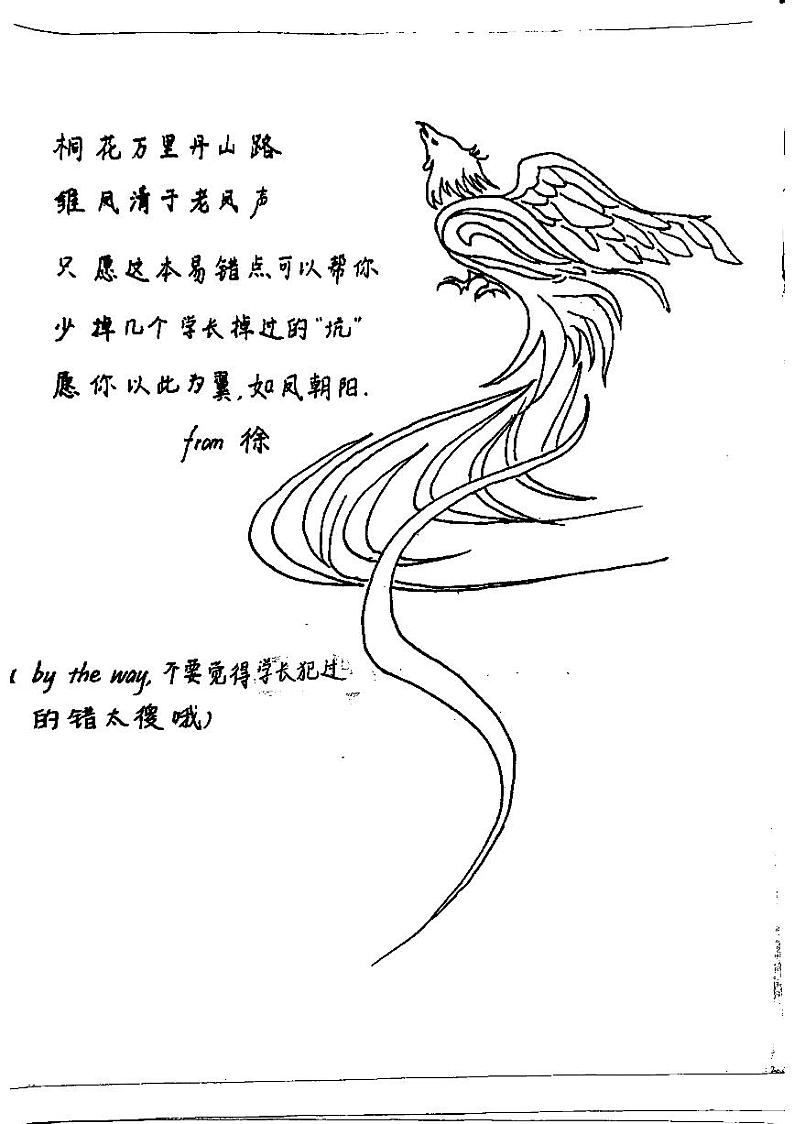 桐花万里丹山路
雏凤清于老凤声
只愿这本易错点可以帮你
少掉几个学长掉过的“坑”
愿你以此为翼,如凤朝阳.
from 徐
( by the way, 不要觉得学长犯过
的错太傻哦)